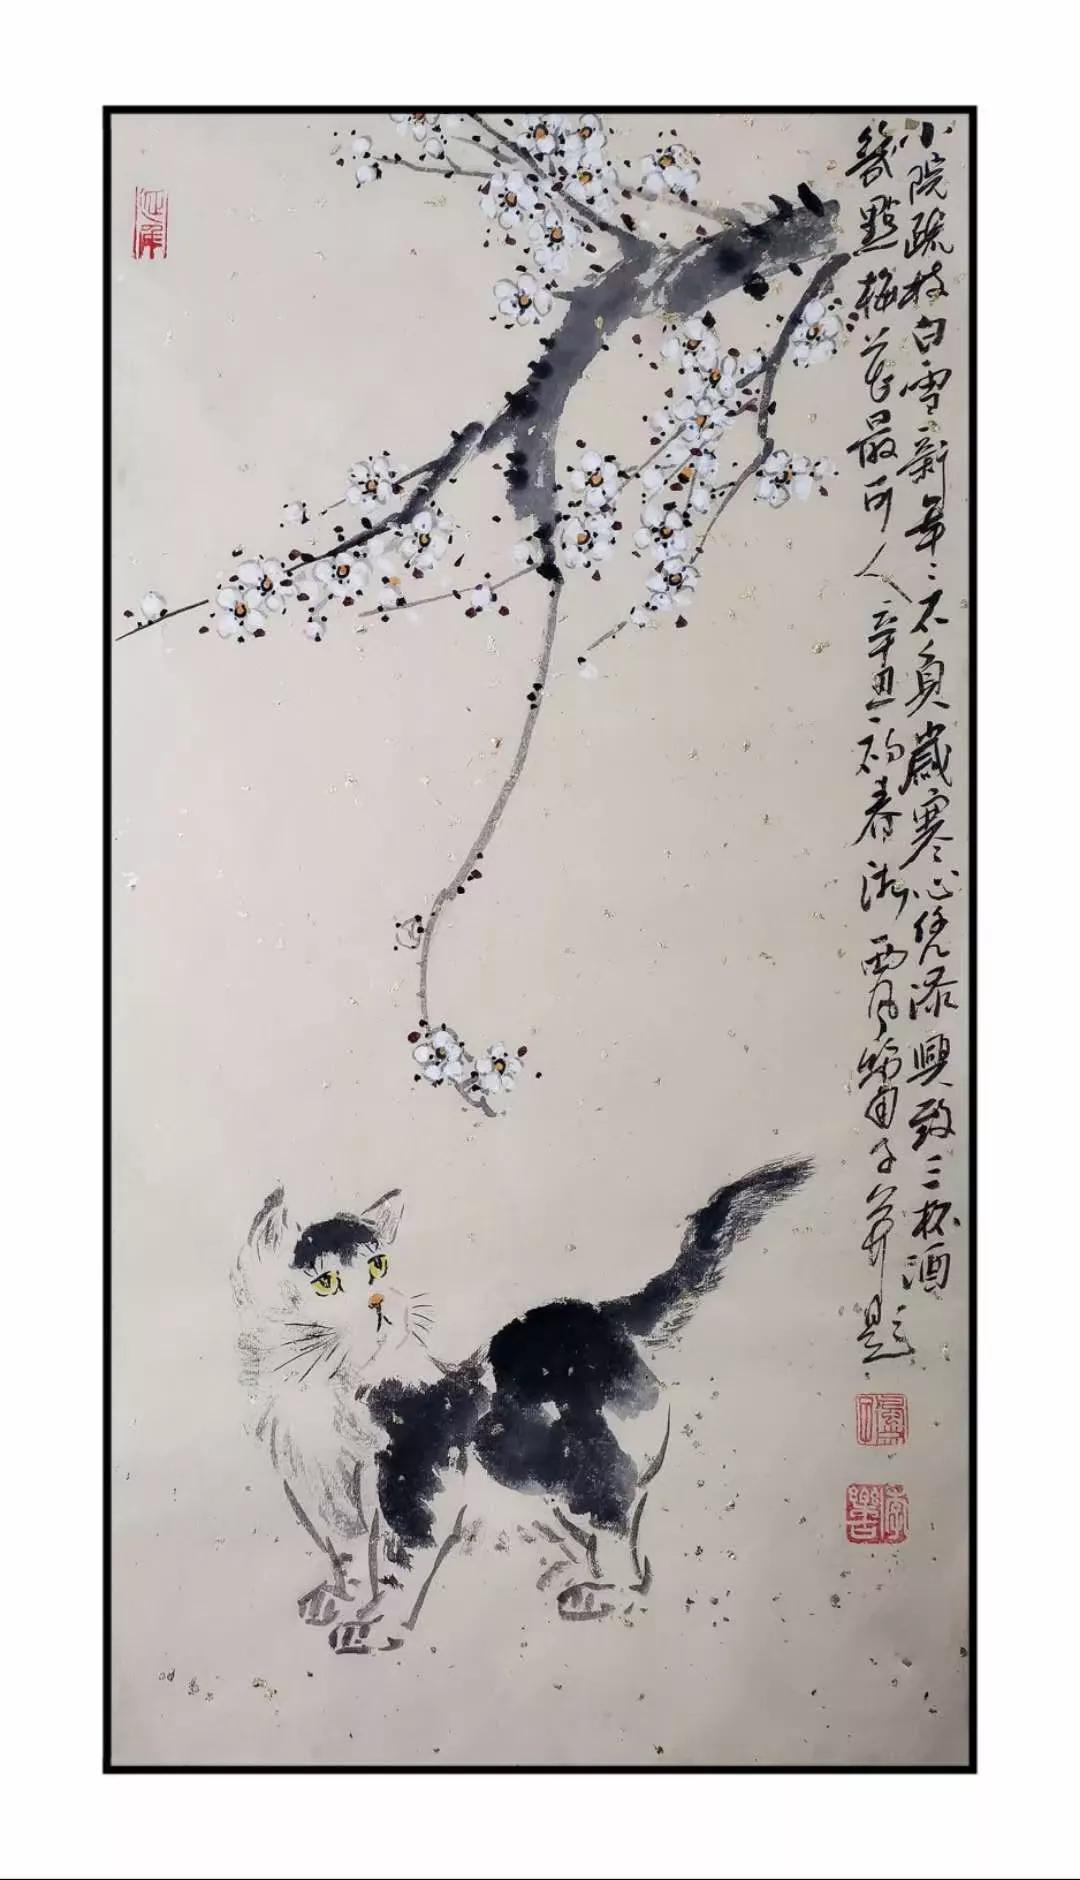 小院疏枝白雪新年〻不負歲寒心凭添興致三杯酒
幾點梅花最可人辛丑初春西子并題